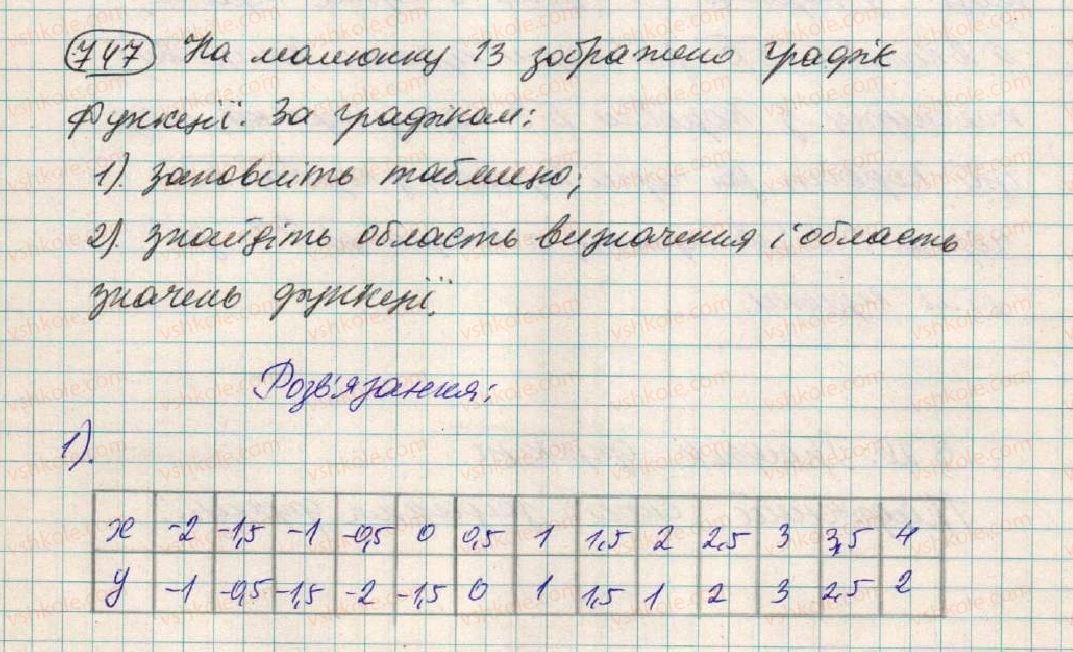 747 На малюнку 13 зображено графік
функції. За графіком:
1). заповніть таблицю;
2). знайдіть область визначення і область
значень функції.
Розв'язання:
1).
x -2 -1,5 -1 -0,5 0 0,5 1 1,5 2 2,5 3 3,5 4
y -1 -0,5 -1,5 -2 -1,5 0 1 1,5 1 2 3 2,5 2